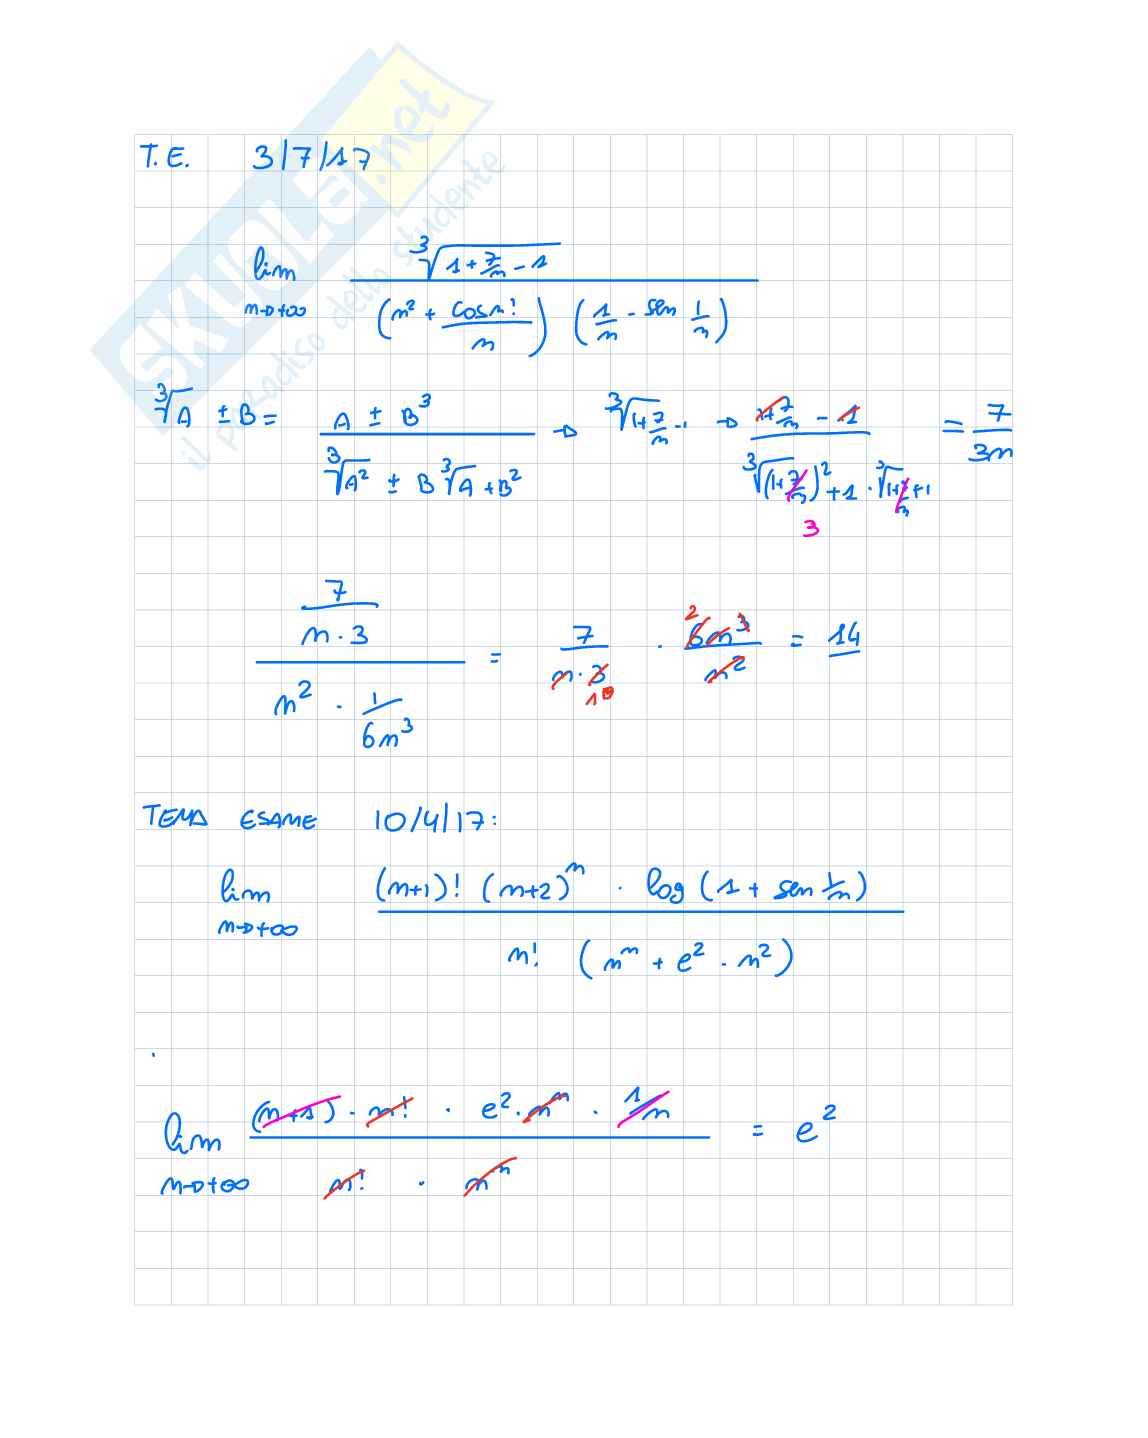 SKUOLA.net
il paradiso dello studente
T.E. 3/7/17
lim n→+∞ ∛(1 + 7/n - 1) / (n² + cos n!/n) (1/n - sen 1/n)
∛A ± B = A ± B³ / ∛A² ± B ∛A + B² → ∛(1+7/n) - 1 → 1+7/n - 1 / ∛(1+7/n)² + 1 · ∛(1+7/n) + 1 = 7/3n
3
7/(n · 3) / n² · 1/6n³ = 7/(n · 3) · 6n³/n² = 14
2
1
TEMA ESAME 10/4/17:
lim n→+∞ (n+1)! (n+2)ⁿ · log (1 + sen 1/n) / n! (nⁿ + e² · n²)
lim n→+∞ (n+1) · n! · e² · nⁿ · 1/n / n! · nⁿ = e²